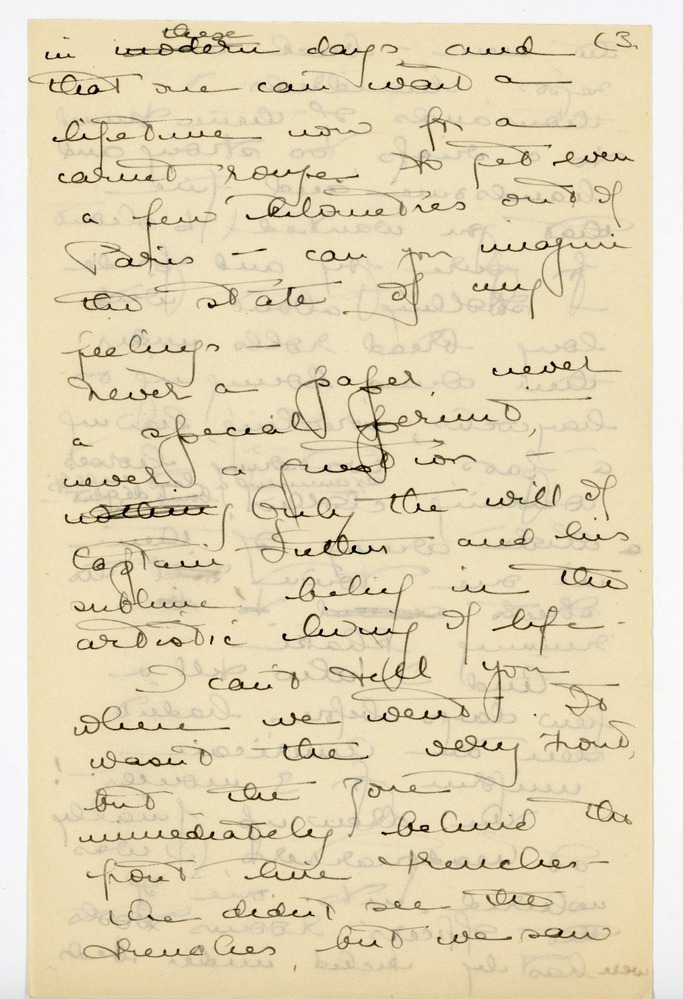 these
in modern days and (3.
that one can wait a
lifetime now for a
carnet rouge to get even
a few kilometres out of
Paris - can you imagine
the state of my
feelings -
Never a paper, never
a special permit,
never a question -
nothing only the will of
Captain and his
sublime belief in the
artistic living of life.
I can't tell you
where we went. It
wasn't the very front,
but the zone
immediately behind the
front line trenches -
We didn't see the
trenches, but we saw